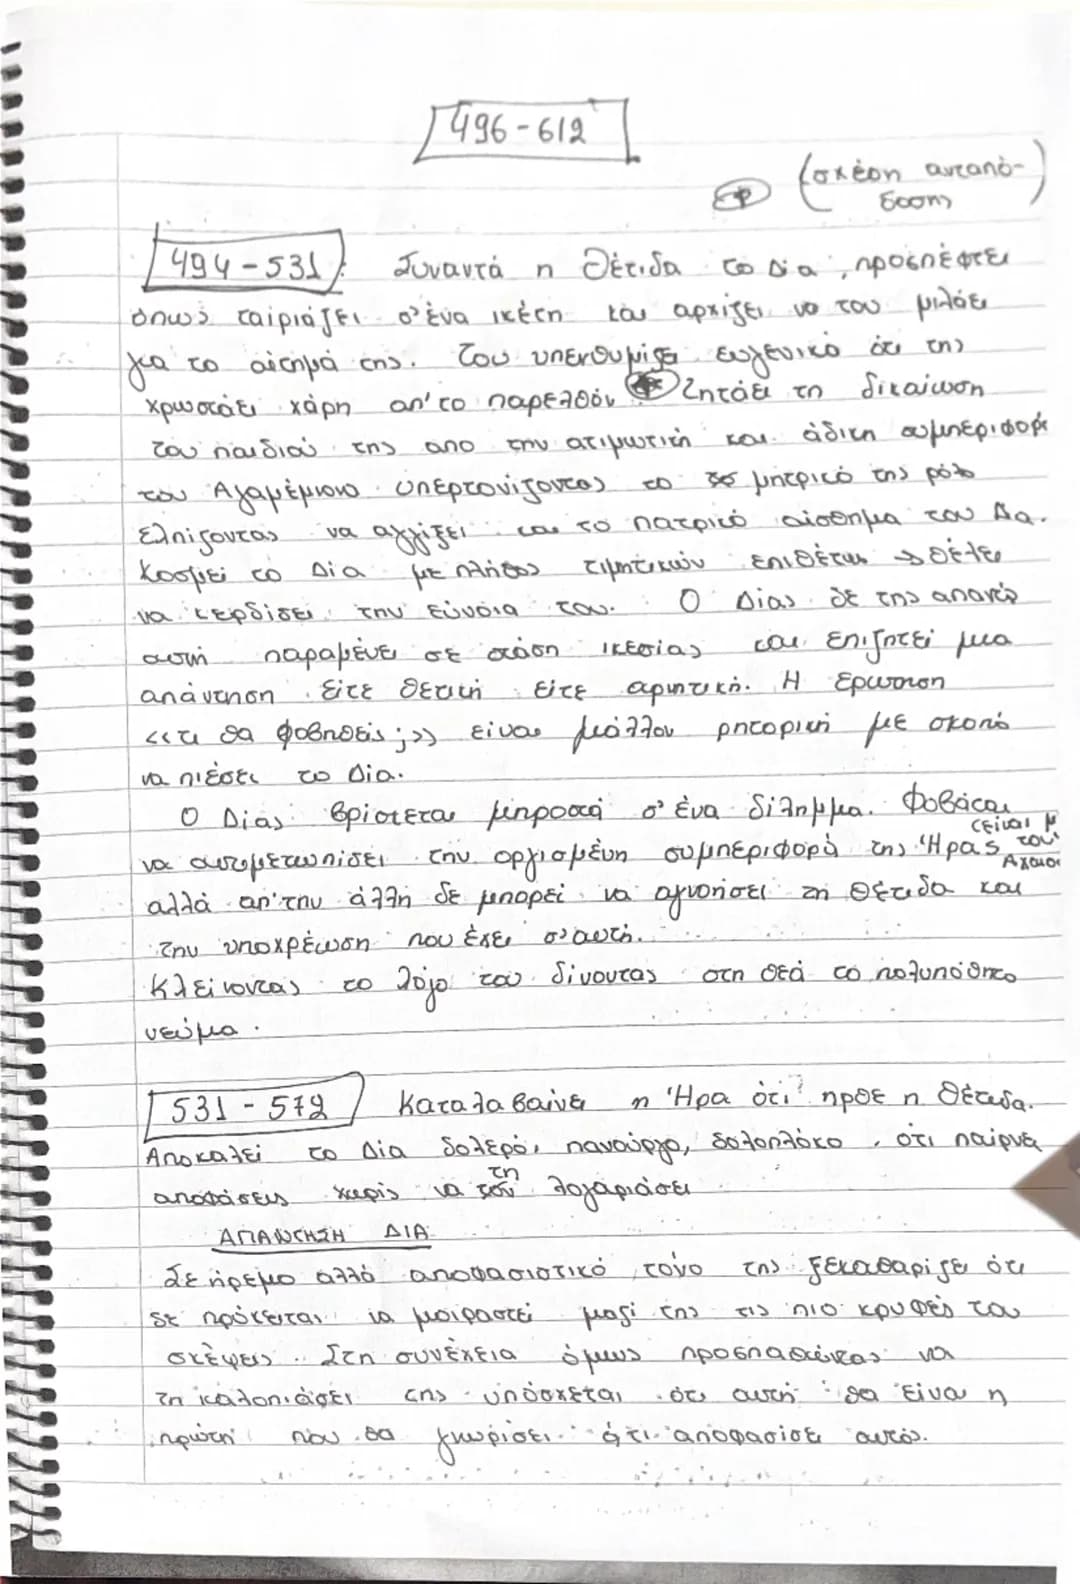 496-612
(σχέση ανταπό-
δοσης)
494-531 Συναντά η Θέτιδα το Δία, προσπέφτει
όπως ταιριάζει σ' ένα ικέτη και αρχίζει να του μιλάει
για το αίτημά της. Του υπενθυμίζει ευγενικά ότι της
χρωστάει χάρη απ' το παρελθόν Ζητάει τη δικαίωση
του παιδιού της απο την ατιμωτική και άδικη συμπεριφορά
του Αγαμέμνονα υπερτονίζοντας το μητρικό της ρόλο
ελπίζοντας να αγγίξει και το πατρικό αίσθημα του Δία.
Κοσμεί το Δία με πλήθος τιμητικών επιθέτων → θέλει
να κερδίσει την εύνοια του. Ο Δίας δε της απαντά
αυτή παραμένει σε στάση ικεσίας και επιζητεί μια
απάντηση είτε θετική είτε αρνητική. Η ερώτηση
<<τι θα φοβηθείς;>> είναι μάλλον ρητορική με σκοπό
να πιέσει το Δία.
Ο Δίας βρίσκεται μπροστά σ' ένα δίλημμα. Φοβάται
(είναι μ
να αντιμετωπίσει την οργισμένη συμπεριφορά της Ήρας τους
Αχαιοί
αλλά απ' την άλλη δε μπορεί να αγνοήσει τη Θέτιδα και
την υποχρέωση που έχει σ' αυτή.
Κλείνοντας το λόγο του δίνοντας στη θεά το πολυπόθητο
νεύμα.
531-572 Καταλαβαίνει η Ήρα ότι ήρθε η Θέτιδα.
Αποκαλεί το Δία δολερό, πανούργο, δολοπλόκο, ότι παίρνει
αποφάσεις χωρίς να τη λογαριάσει
ΑΠΑΝΤΗΣΗ ΔΙΑ
Σε ήρεμο αλλά αποφασιστικό τόνο της ξεκαθαρίζει ότι
δε πρόκειται να μοιραστεί μαζί της τις πιο κρυφές του
σκέψεις. Στη συνέχεια όμως προσπαθώντας να
τη καλοπιάσει της υπόσχεται ότι αυτή θα είναι η
πρώτη που θα γνωρίσει ό,τι αποφασίσει αυτός.